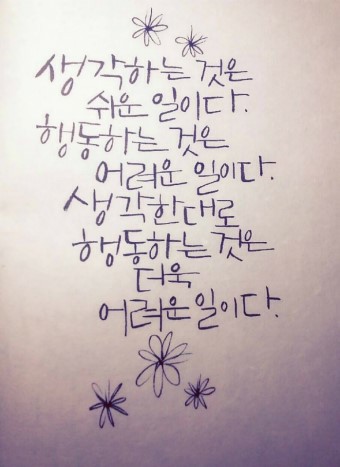 생각하는 것은
쉬운 일이다.
행동하는 것은
어려운 일이다.
생각한대로
행동하는 것은
더욱
어려운 일이다.